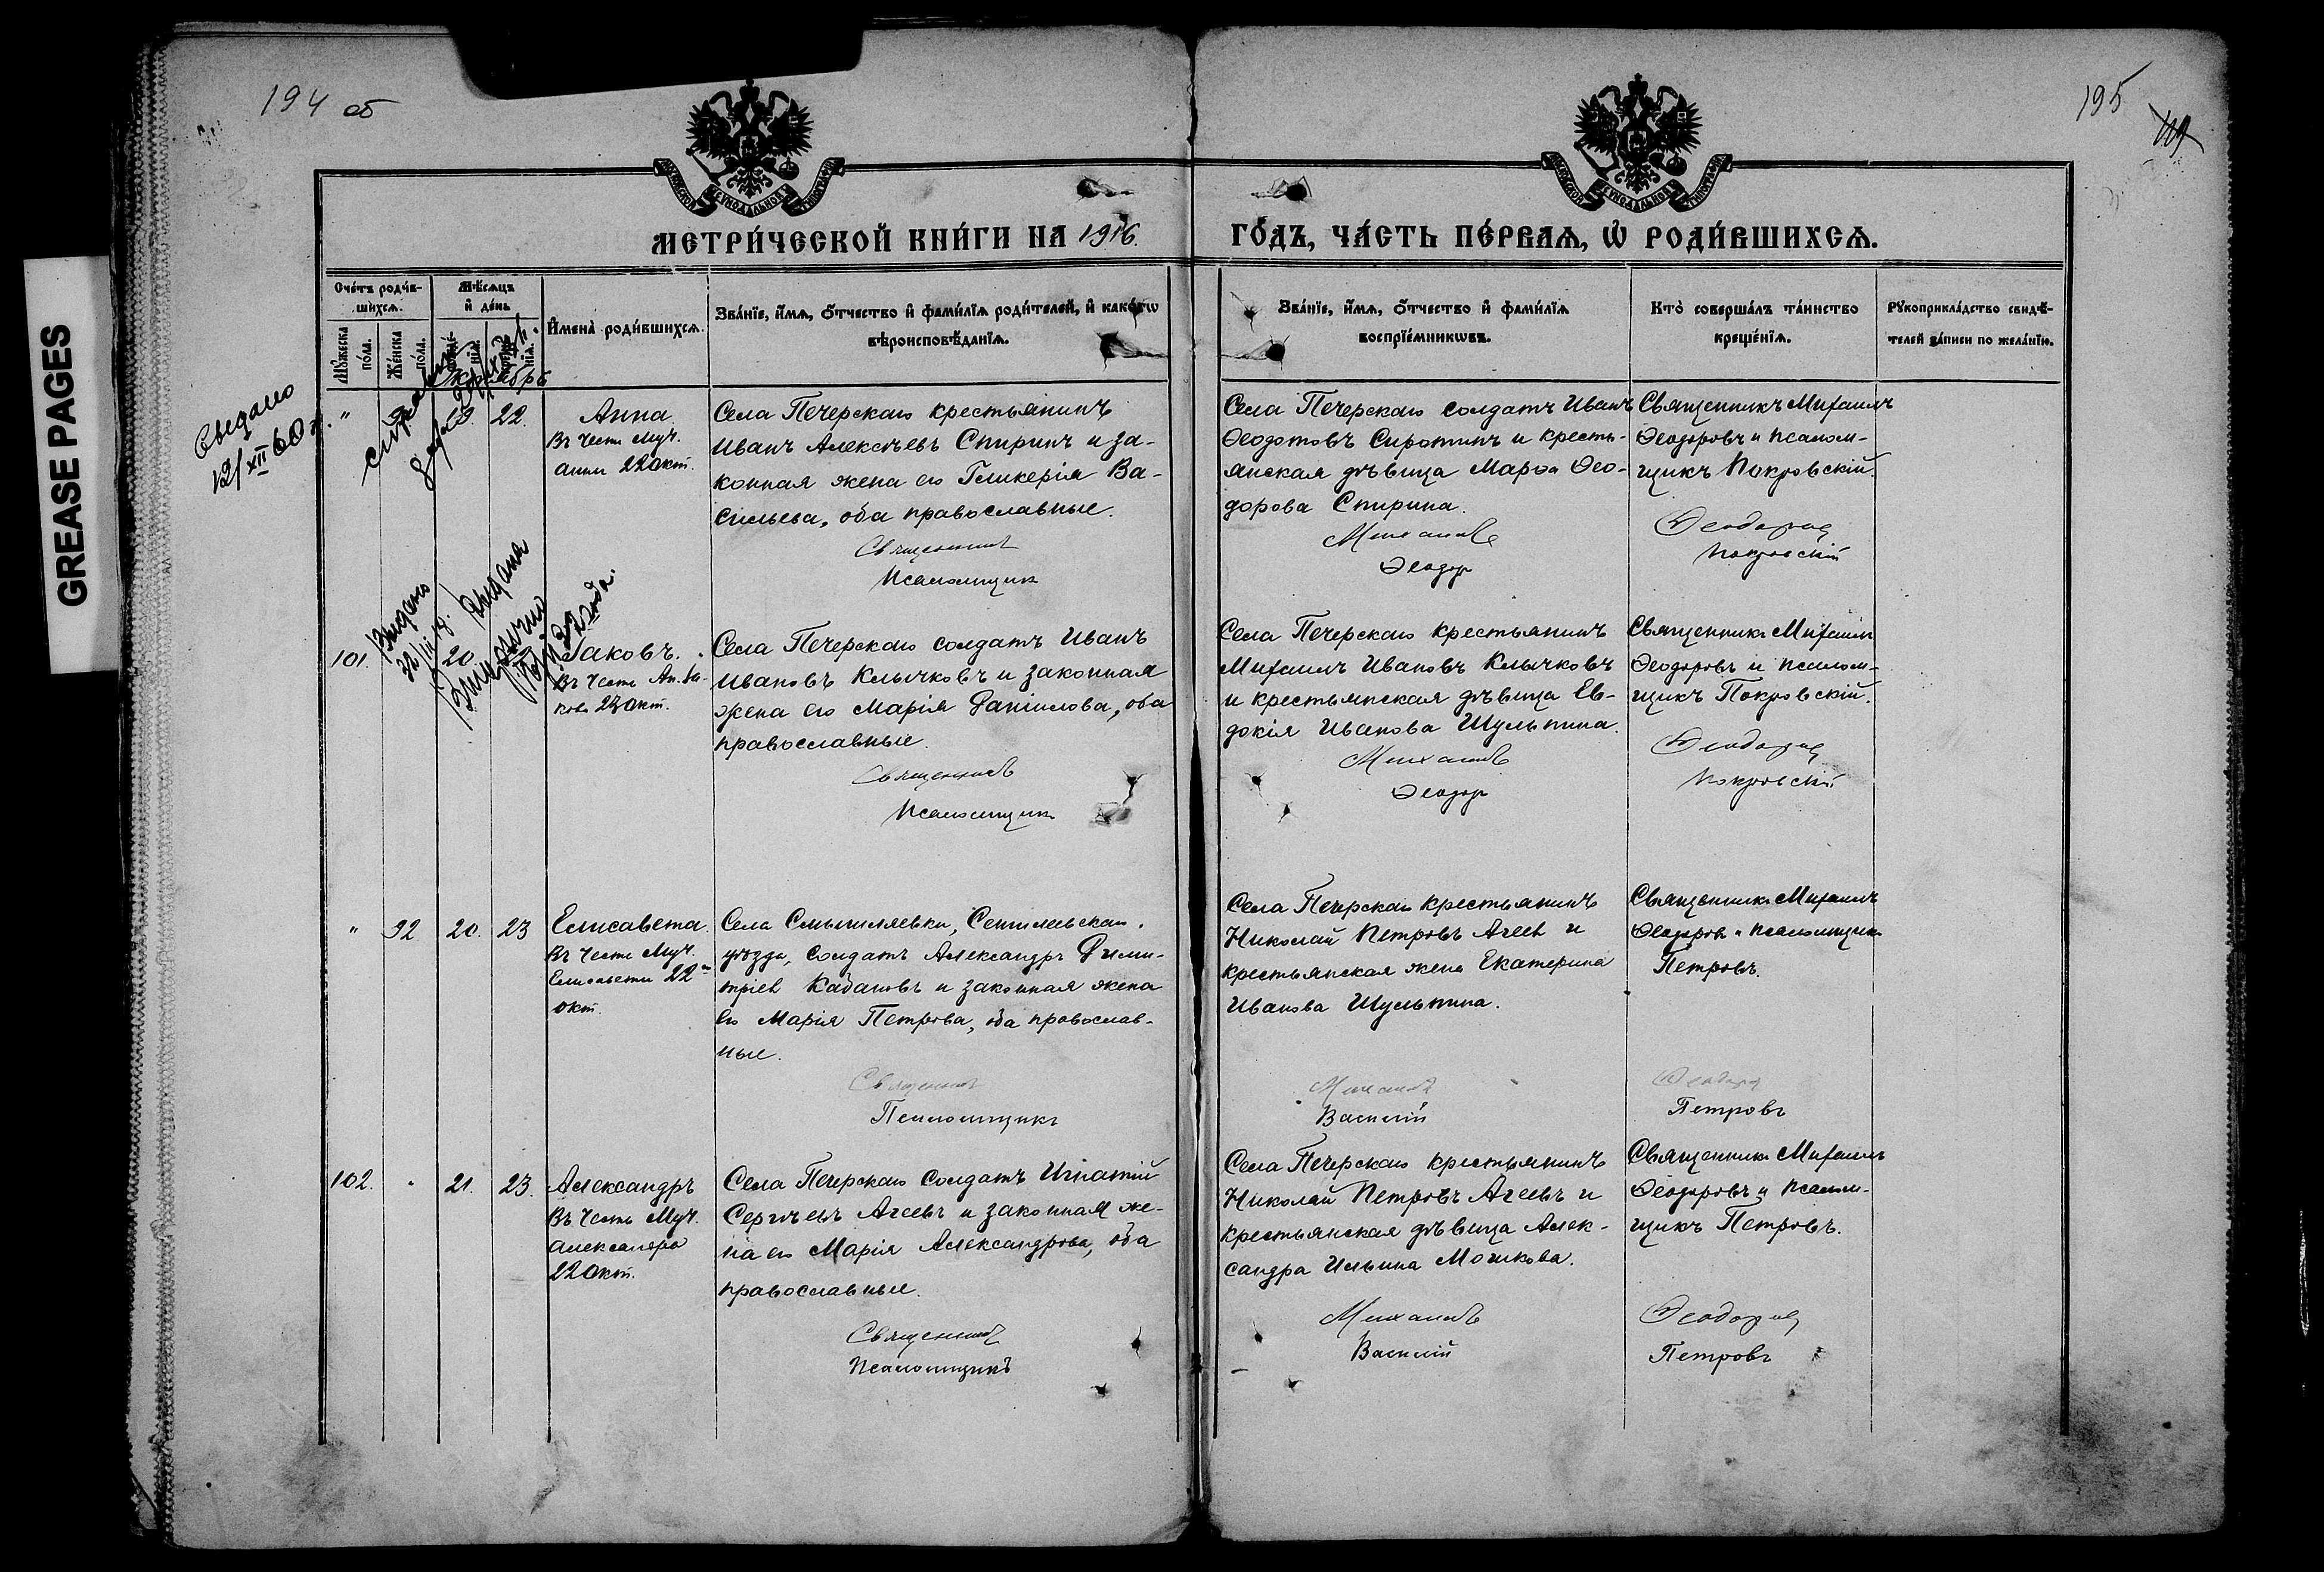 GREASE PAGES
194 об
195
МЕТРИ́ЧЕСКОЙ КНИ́ГИ НА 1916.
ГО́ДЪ, ЧА́СТЬ ПЕ́РВАѦ, Ѡ РОДИ́ВШИХСѦ.
Сче́тъ роди́в-
шихсѧ.
Мꙋ́жеска по́ла.
Же́нска по́ла.
Мѣ́сѧцъ
и҆ де́нь
И҆мена̀ роди́вшихсѧ.
Зва́нїе, и҆́мѧ, ѻ҆́тчество и҆ фами́лїѧ роди́телей, и҆ како́гѡ
вѣроисповѣ́данїѧ.
Зва́нїе, и҆́мѧ, ѻ҆́тчество и҆ фами́лїѧ
воспрїе́мникѡвъ.
Кто̀ соверша́лъ та́инство
креще́нїѧ.
Рꙋкоприкла́дство свидѣ́-
телей за́писи по жела́нїю.
Октябрь
12/XII 60 г.
"
19.
22.
Анна
Въ честь муч.
Анны 22 окт.
Села Печерскаго крестьянинъ
Иванъ Алексѣевъ Спиринъ и за-
конная жена его Гликерія Ва-
сильева, оба православные.
Священникъ
Псаломщик
Села Печерскаго солдатъ Иванъ
Ѳеодотовъ Сиротинъ и кресть-
янская дѣвица Марѳа Ѳео-
дорова Спирина.
Михаилъ
Ѳеодор
Священникъ Михаилъ
Ѳеодоровъ и псалом-
щикъ Покровскій.
Ѳеодоров
Покровскій
101.
Выдано
20.
Іаковъ.
Въ честь Ап. Іа-
кова 23 окт.
Села Печерскаго солдатъ Иванъ
Ивановъ Клычковъ и законная
жена его Марія Даніилова, оба
православные.
Священникъ
Псаломщик
Села Печерскаго крестьянинъ
Михаилъ Ивановъ Клычковъ
и крестьянская дѣвица Ев-
докія Иванова Шульпина.
Михаилъ
Ѳеодор
Священникъ Михаилъ
Ѳеодоровъ и псалом-
щикъ Покровскій.
Ѳеодоров
Покровскій
"
92
20.
23
Елисавета.
Въ честь муч.
Елисаветы 22го
окт.
Села Смышляевки, Сенгилеевскаго
уѣзда, солдатъ Александръ Дими-
тріев Кабановъ и законная жена
его Марія Петрова, оба православ-
ные.
Священникъ
Псаломщикъ
Села Печерскаго крестьянинъ
Николай Петровъ Агеев и
крестьянская жена Екатерина
Иванова Шульпина.
Михаилъ
Василій
Священникъ Михаилъ
Ѳеодоровъ и псаломщикъ
Петровъ.
Ѳеодоров
Петровъ
102.
"
21.
23.
Александръ
Въ честь муч.
Александра
22 окт.
Села Печерскаго солдатъ Игнатій
Сергѣевъ Агеевъ и законная же-
на его Марія Александрова, оба
православные.
Священникъ
Псаломщикъ
Села Печерскаго крестьянинъ
Николай Петровъ Агеевъ и
крестьянская дѣвица Алек-
сандра Ильина Мошкова.
Михаилъ
Василій
Священникъ Михаилъ
Ѳеодоровъ и псалом-
щикъ Петровъ.
Ѳеодоров
Петровъ